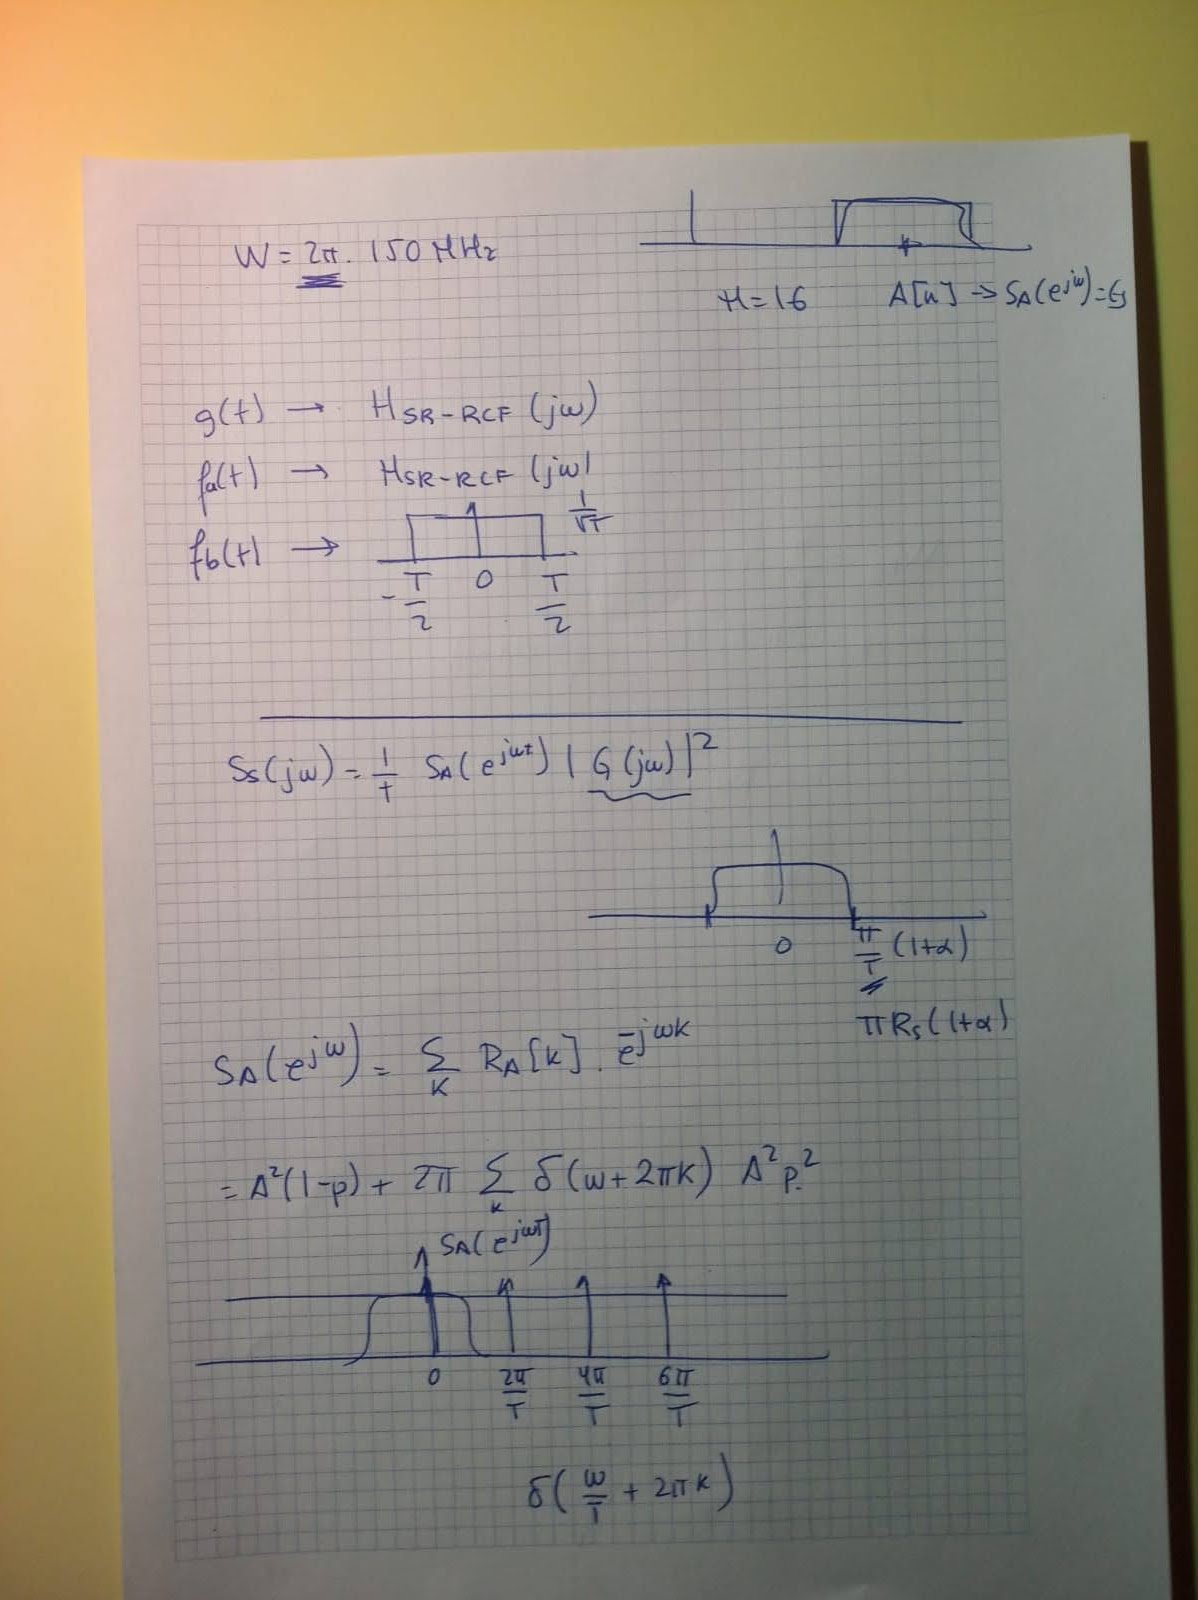 W = 2π. 150 MHz
M=16 A[n] → S_A(e^{jω}) = Es
g(t) → H_{SR-RCF} (jω)
fa(t) → H_{SR-RCF} (jω)
fb(t) →
1/√T
-T/2 0 T/2
S_S(jω) = 1/T S_A(e^{jωt}) | G(jω)|^2
0 π/T (1+α)
πRs(1+α)
S_A(e^{jω}) = Σ_K R_A[K] . e^{-jωK}
= A^2(1-p) + 2π Σ_K δ(ω+2πK) A^2 p^2.
S_A(e^{jωT})
0 2π/T 4π/T 6π/T
δ( ω/T + 2πK)